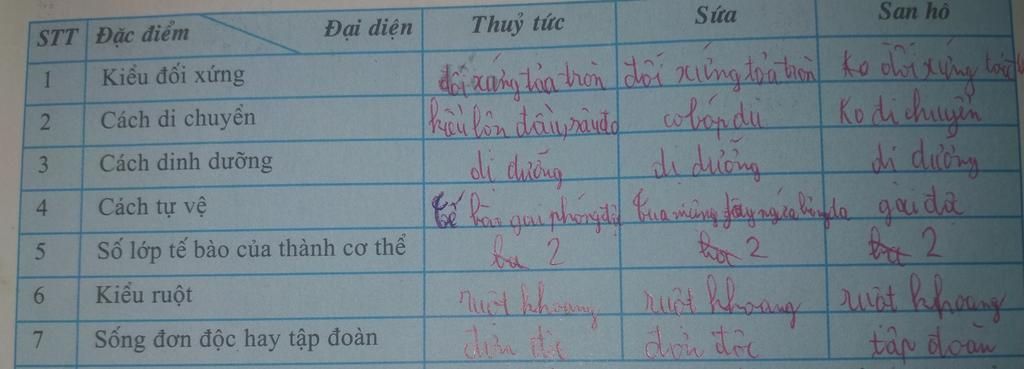 STT Đặc điểm Đại diện Thuỷ tức Sứa San hô
1 Kiểu đối xứng đối xứng tỏa tròn đối xứng tỏa tròn Ko đối xứng
2 Cách di chuyển kiểu lộn đầu, sâu đo co bóp dù Ko di chuyển
3 Cách dinh dưỡng dị dưỡng dị dưỡng dị dưỡng
4 Cách tự vệ tế bào gai tua miệng gây ngứa
5 Số lớp tế bào của thành cơ thể 2 2 2
6 Kiểu ruột ruột khoang ruột khoang ruột khoang
7 Sống đơn độc hay tập đoàn đơn độc đơn độc tập đoàn